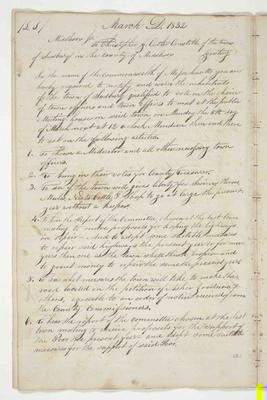 March A.D. 1832
Middlesex Ss.
To Christopher G. Cutler Constable of the town
of Sudbury in the County of Middlesex Greeting
In the name of the commonwealth of Massachusetts you are
hereby required to notify and warn the inhabitants
of the town of Sudbury qualified to vote in the choice
of town officers and town affairs to meet at the public
Meeting house in said town on Monday the 5th day
of March next at 12 o clock Meridian then and there
to act on the following articles
1. To choose a Moderator and all other necessary town
officers.
2. To bring in their votes for County Treasurer
3. To see if the town will give liberty for
Neat Cattle, & to go at large the present
year without a Keeper.
4. To hear the Report of the Committee chosen at the last town
meeting to receive proposals for keeping the highways
in repair and to adopt some other measures
to repair said highways the present year or for more
years than one as the town shall think proper and
to grant money to repair the same the present year
5. To see what measures the town will take to make the
road located on the petition of Asher Goodnow &
others, agreeable to an order of notice received from
the County Commissioners.
6. To hear the report of the committee chosen at the last
town meeting to receive proposals for the support of
the Poor the present year and adopt some suitable
measures for the support of said Poor